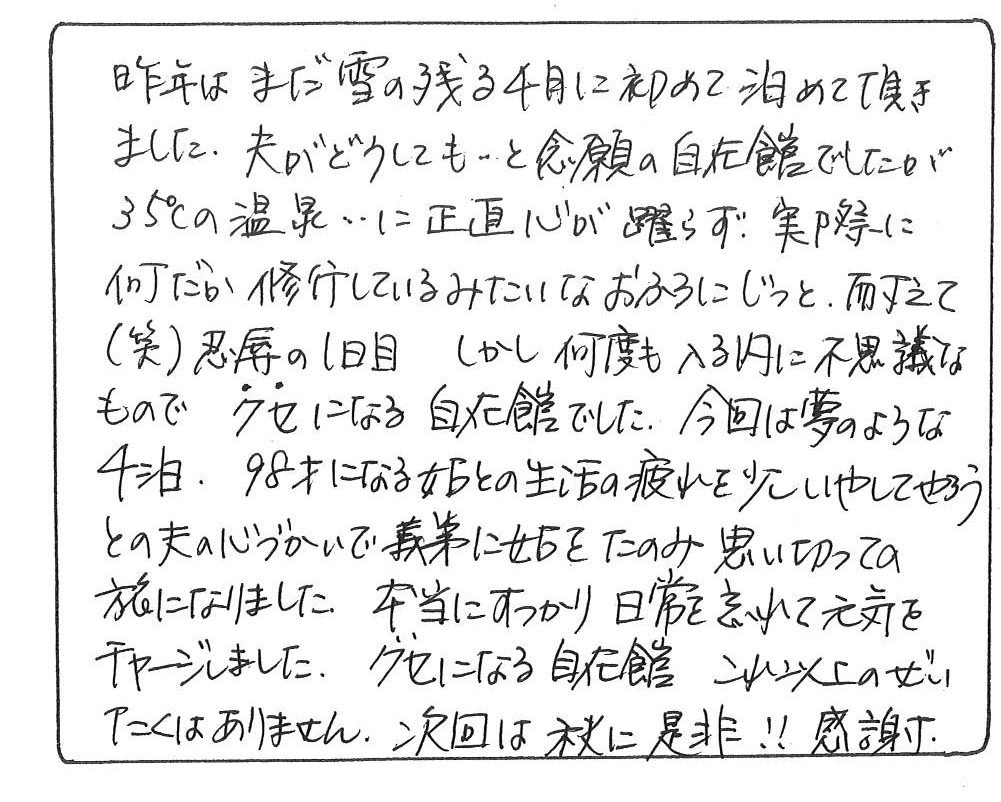 昨年は まだ雪の残る4月に初めて泊めて頂き
ました. 夫がどうしても‥と念願の自在館でしたが
35℃の温泉‥に正直心が躍らず. 実際に
何だか修行しているみたいなおふろにじっと. 耐えて
(笑)忍辱の1日目 しかし何度も入る内に不思議な
もので クセになる自在館でした. 今回は夢のような
4泊. 98才になる姑との生活の疲れを少しいやしてやろう
との夫の心づかいで義弟に姑をたのみ思い切っての
旅になりました. 本当にすっかり日常を忘れて元気を
チャージしました. クセになる自在館 これ以上のぜい
たくはありません. 次回は秋に是非!! 感謝.